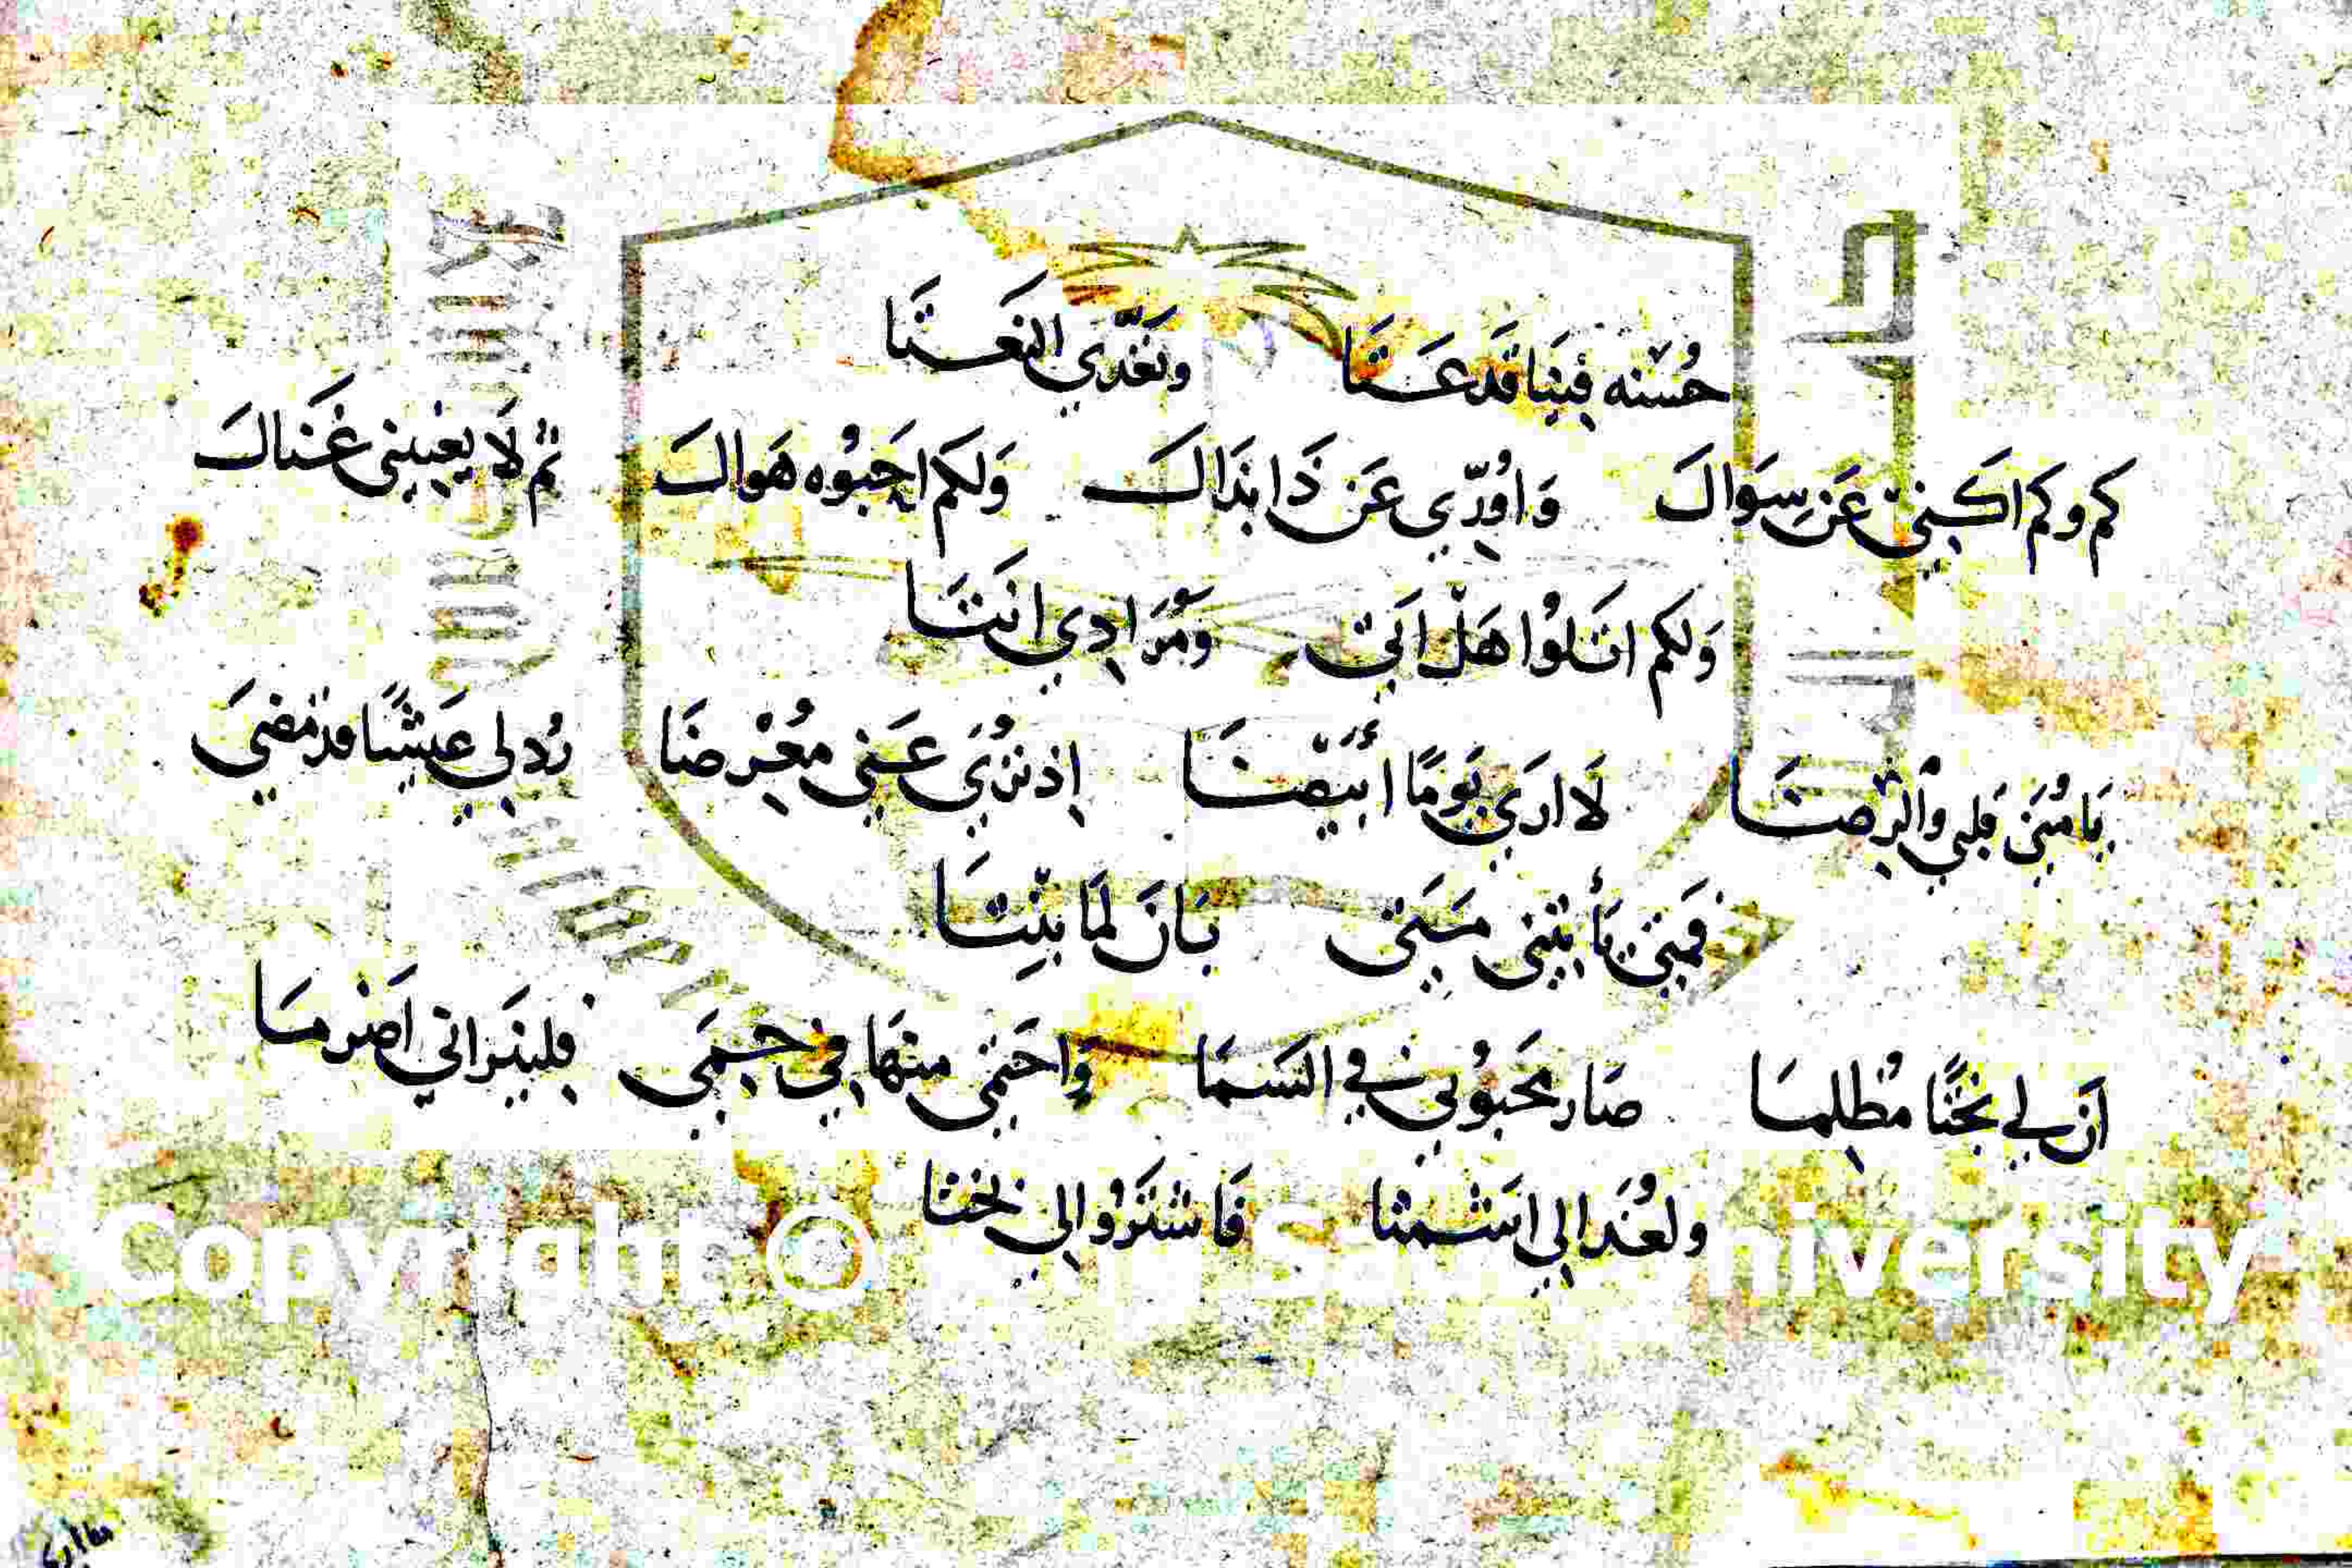 حُسْنه فِينَا قَد عَتَا وَتَعَدَّي النَعَتَا
كم وكم اكَنِي عَن سِوَالَ وَاوُرّي عَن ذَا بذَاكَ وَلكم احَبوُه هَوالَ ثم لَا يغنيني غَناكَ
وَلكم اتَلوُا هَلْ اَتي وَمُرَادِي انتَا
يَا مُنَي قلبي وَالرضَا لَا ارَي يَومًا أبيضَا اِذ نرُي عَني مُعْرضَا رُد لي عَيشًا قد مَضيَ
فمَتي يَأ تيني مَتَي بَانَ لمَا بنِتَا
اَن لي بَختًا مُظلِمَا صَار محَبوُبي في السَمَا وَاحتمي منهَا في حِمَي فلينَراني اَضرمَا
ولغُدَا لي اسَثمثا فَاشتَرُوا لي بختا
Copyright © King Saud University